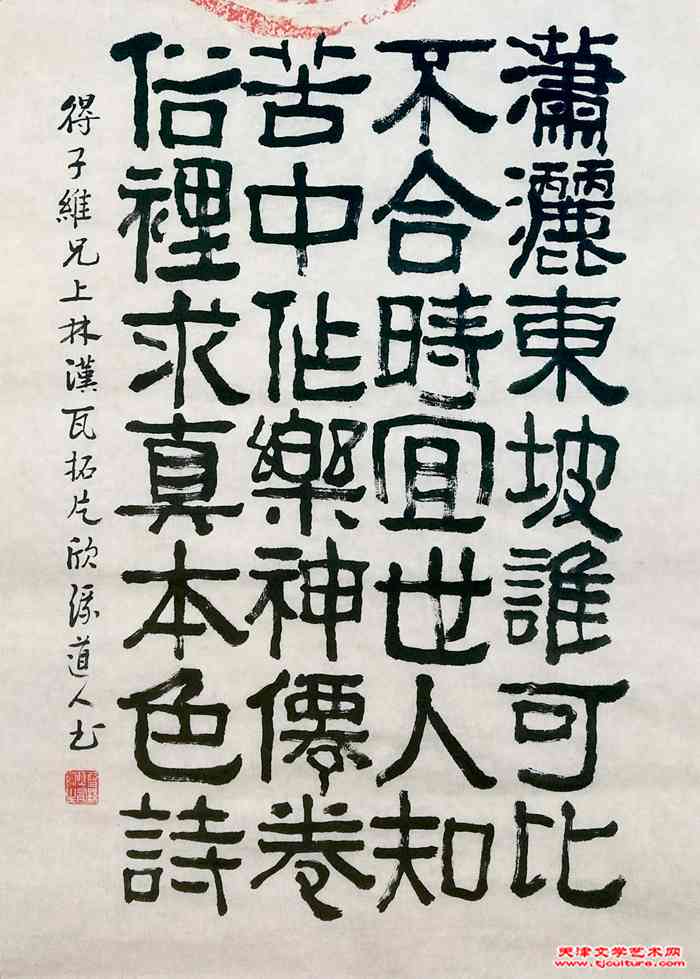 瀟灑東坡誰可比
不合時宜世人知
苦中作樂神僊卷
俗裡求真本色詩
得子維兄上林漢瓦拓片欣 道人书
天津文学艺术网
www.tjculture.com